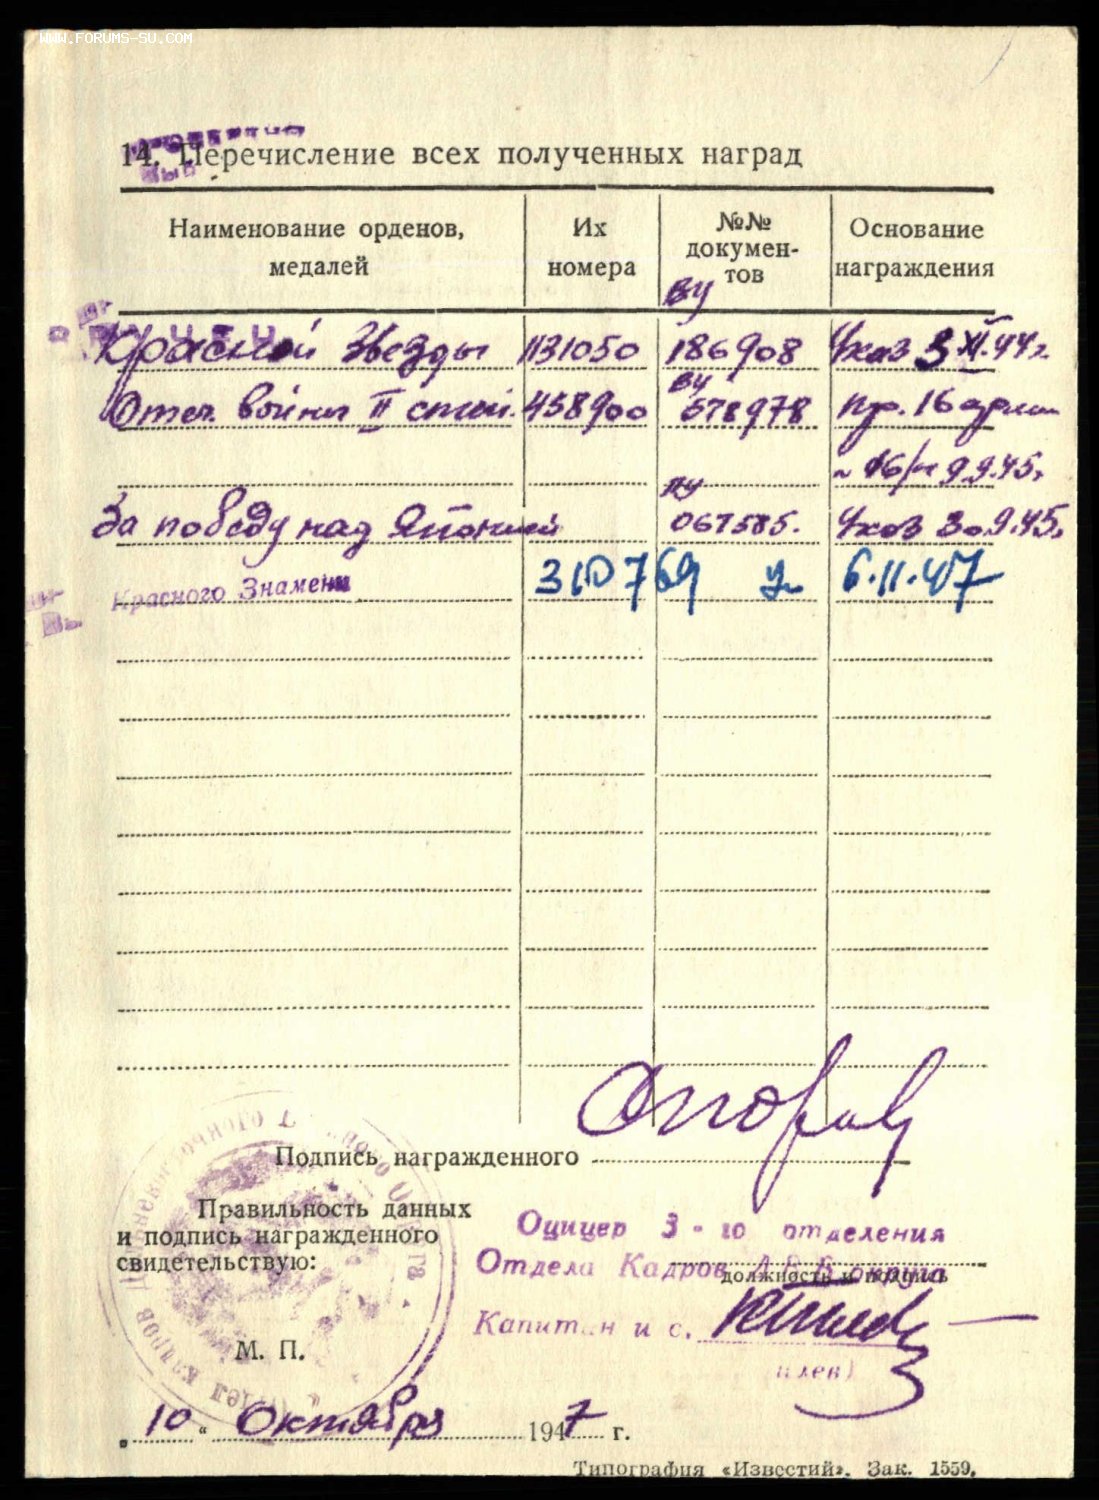 WWW.FORUMS-SU.COM
14. Перечисление всех полученных наград
Наименование орденов, медалей
Их номера
№№ документов
Основание награждения
ВУ
Красной Звезды 1131050 186908 Указ 3 XI.44г.
ВУ
Отеч. войны II степ. 458900 578978 Пр. 16 армии
16/н 9.9.45.
ПУ
За победу над Японией 067585. Указ 30.9.45.
Красного Знамени 310769 6.11.47
Подпись награжденного
Правильность данных
и подпись награжденного
свидетельствую:
Оцицер 3-го отделения
Отдела Кадров округа
должность и подпись
Капитан и с.
М. П.
„ 10 “ Октября 1947 г.
Типография «Известий». Зак. 1559.